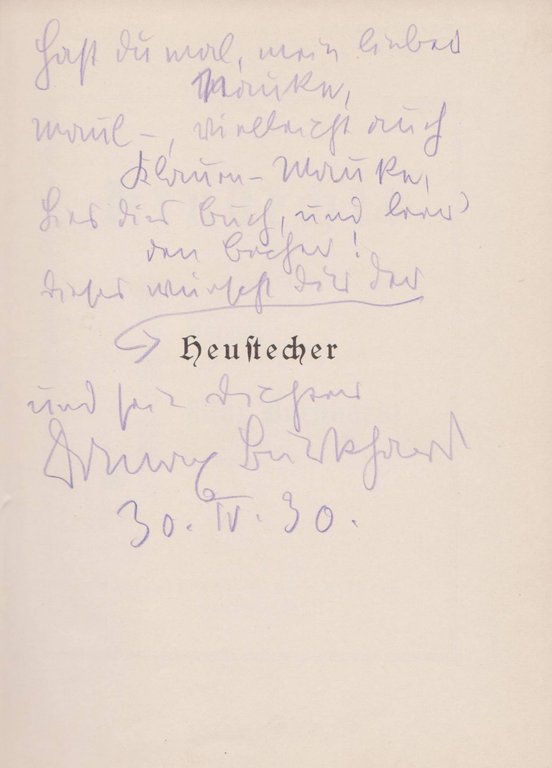 Hast du mal, mein lieber
Mauke,
Maul-, vielleicht auch
Klauen-Mauke,
Lies dies Buch, und leer'
den Becher!
Dieses wünscht dir der
Heustecher
und sein Dichter
Burkhard
30. IV. 30.